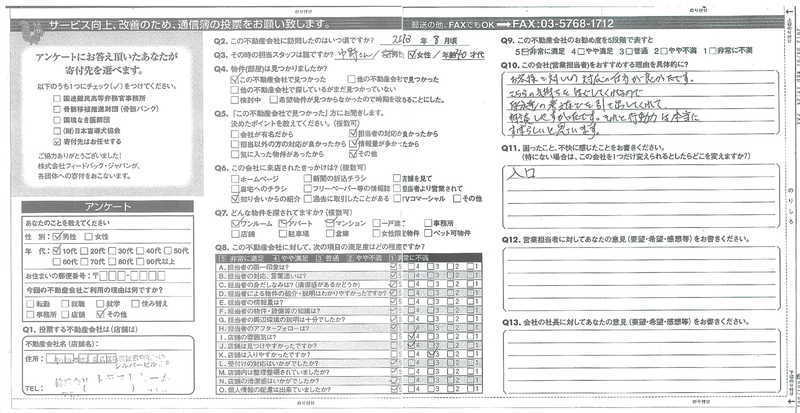 サービス向上、改善のため、通信簿の投票をお願い致します。
郵送の他、FAXでもOK → FAX:03-5768-1712
アンケートにお答え頂いたあなたが
寄付先を選べます。
以下のうち1つだけチェック(✓)をつけてください。
国連難民高等弁務官事務所
骨髄移植推進財団(骨髄バンク)
国境なき医師団
(財)日本盲導犬協会
寄付先はお任せする
ご協力ありがとうございました!
株式会社フィードバック・ジャパンが、
各団体への寄付をおこないます。
アンケート
あなたのことを教えてください
性別: 男性 女性
年代: 10代 20代 30代 40代 50代
60代 70代 80代 90代以上
お住まいの郵便番号: 〒
今回の不動産会社ご利用の理由は何ですか?
転勤 就職 就学 住み替え
事務所 店舗 その他
Q1. 投票する不動産会社は(店舗は)
不動産会社名(店舗名):
住所:
シルバービル
TEL:
Q2. この不動産会社に訪問したのはいつ頃ですか? 2013年 8月頃
Q3. その時の担当スタッフは誰ですか? 中野さん/男性 女性/年齢40才代
Q4. 物件(部屋)は見つかりましたか?
この不動産会社で見つかった 他の不動産会社で見つかった
他の不動産会社で探しているがまだ見つかっていない
検討中 希望物件が見つからなかったので時期を改めることにした。
Q5.「この不動産会社で見つかった」方にお聞きします。
決めたポイントを教えてください。(複数可)
会社が有名だから 担当者の対応が良かったから
担当以外の方の対応が良かったから 情報量が多かったから
気に入った物件があったから その他
Q6. この会社に来店されたきっかけは?(複数可)
ホームページ 新聞の折込チラシ 店舗を見て
自宅へのチラシ フリーペーパー等の情報誌 担当者より営業されて
知り合いからの紹介 過去に取引したことがある TVコマーシャル その他
Q7. どんな物件を探されてますか?(複数可)
ワンルーム アパート マンション 一戸建 事務所
店舗 駐車場 倉庫 女性限定物件 ペット可物件
Q8. この不動産会社に対して、次の項目の満足度はどの程度ですか?
5 非常に満足 4 やや満足 3 普通 2 やや不満 1 非常に不満
A. 担当者の第一印象は? 5 4 3 2 1
B. 担当者の対応、言葉遣いは? 5 4 3 2 1
C. 担当者の身だしなみは?(清潔感があるかどうか) 5 4 3 2 1
D. 担当者による物件の紹介・説明はわかりやすかったですか? 5 4 3 2 1
E. 担当者の情報量は? 5 4 3 2 1
F. 担当者の物件・設備等の知識は? 5 4 3 2 1
G. 担当者の周辺環境の説明は十分でしたか? 5 4 3 2 1
H. 担当者のアフターフォローは? 5 4 3 2 1
I. 店舗の雰囲気は? 5 4 3 2 1
J. 店舗は見つけやすかったですか? 5 4 3 2 1
K. 店舗は入りやすかったですか? 5 4 3 2 1
L. 受付けの対応はいかがでしたか? 5 4 3 2 1
M. 店舗内は整理整頓されていましたか? 5 4 3 2 1
N. 店舗の清潔感はいかがでしたか? 5 4 3 2 1
O. 個人情報の配慮は出来ていましたか? 5 4 3 2 1
Q9. この不動産会社のお勧め度を5段階で表すと
5 非常に満足 4 やや満足 3 普通 2 やや不満 1 非常に不満
Q10. この会社(営業担当者)をおすすめする理由を具体的に?
お客様に対しての対応の仕方が良かったです。
こちらの気持ちをほぐしてくれるので
相談しやすかったです。
すばらしいと思います。
Q11. 困ったこと、不快に感じたことをお書きください。
(特にない場合は、この会社を1つだけ変えられるとしたらどこを変えますか?)
入口
Q12. 営業担当者に対してあなたの意見(要望・希望・感想等)をお書きください。
Q13. 会社の社長に対してあなたの意見(要望・希望・感想等)をお書きください。
のり付け
のりしろ